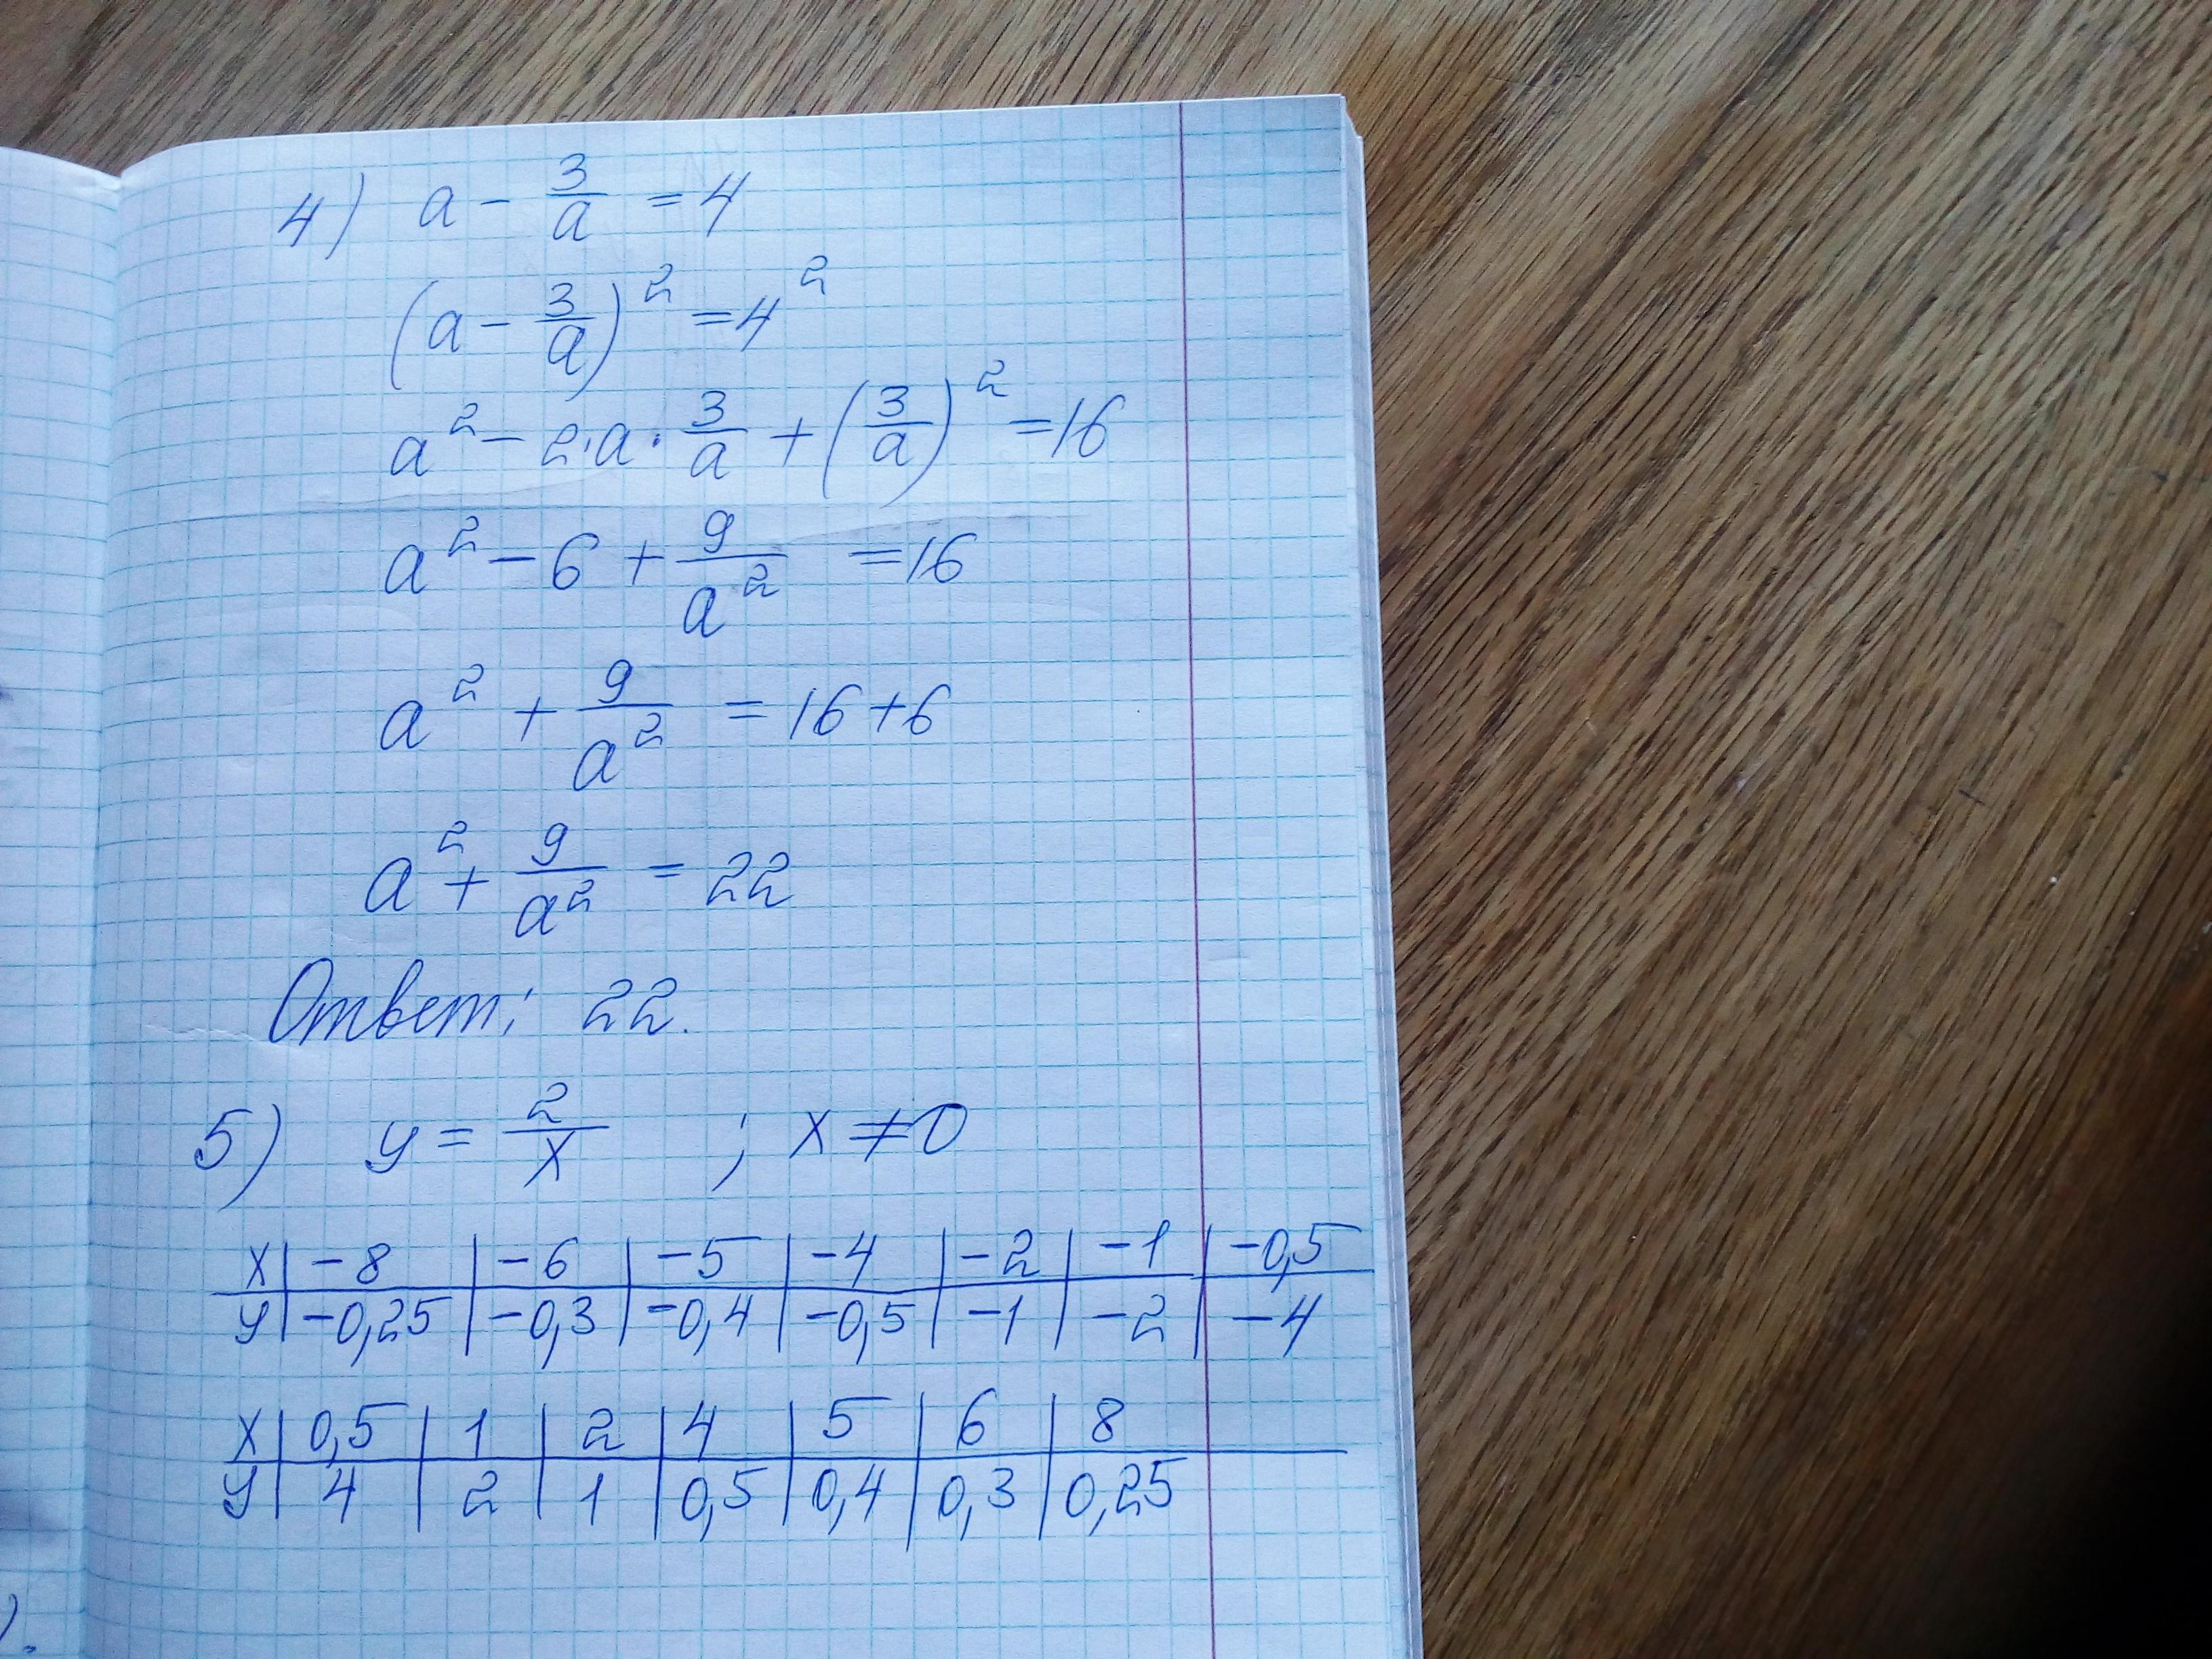 4) a - 3/a = 4
(a - 3/a)² = 4²
a² - 2·a·3/a + (3/a)² = 16
a² - 6 + 9/a² = 16
a² + 9/a² = 16+6
a² + 9/a² = 22
Ответ: 22.
5) y = 2/x ; x ≠ 0
x | -8 | -6 | -5 | -4 | -2 | -1 | -0,5
y | -0,25 | -0,3 | -0,4 | -0,5 | -1 | -2 | -4
x | 0,5 | 1 | 2 | 4 | 5 | 6 | 8
y | 4 | 2 | 1 | 0,5 | 0,4 | 0,3 | 0,25
).